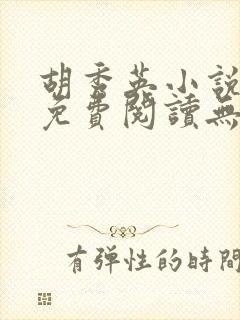 胡秀英小說
免費閱讀無
有弹性的時間